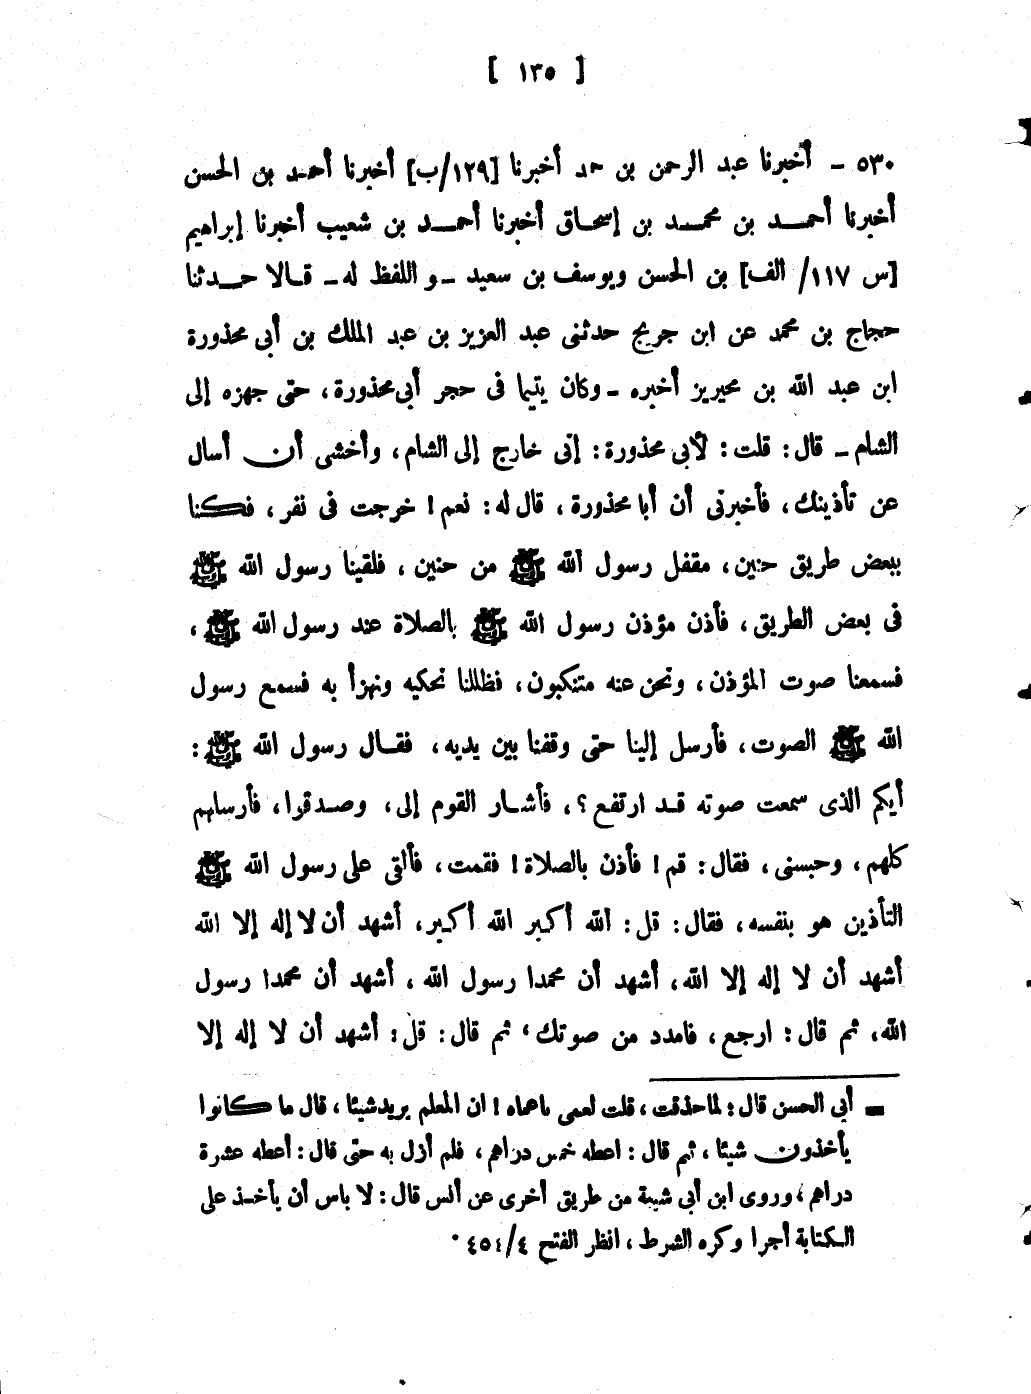 [ ١٣٥ ]
٥٣٠ ـ أخبرنا عبد الرحمن بن حمد أخبرنا [١٢٩/ب] أخبرنا أحمد بن الحسن
أخبرنا أحمد بن محمد بن إسحاق أخبرنا أحمد بن شعيب أخبرنا إبراهيم
[س ١١٧/ الف] بن الحسن ويوسف بن سعيد ـ و اللفظ له ـ قالا حدثنا
حجاج بن محمد عن ابن جريج حدثنى عبد العزيز بن عبد الملك بن أبى محذورة
ابن عبد الله بن محيريز أخبره ـ وكان يتيما فى حجر أبى محذورة، حتى جهزه إلى
الشام ـ قال: قلت: لأبى محذورة: إنى خارج إلى الشام، وأخشى أن أسال
عن تأذينك، فأخبرنى أن أبا محذورة، قال له: نعم! خرجت فى نفر، فكنا
ببعض طريق حنين، مقفل رسول الله ﷺ من حنين، فلقينا رسول الله ﷺ
فى بعض الطريق، فأذن مؤذن رسول الله ﷺ بالصلاة عند رسول الله ﷺ،
فسمعنا صوت المؤذن، ونحن عنه متنكبون، فظللنا نحكيه ونهزأ به فسمع رسول
الله ﷺ الصوت، فأرسل إلينا حتى وقفنا بين يديه، فقال رسول الله ﷺ:
أيكم الذى سمعت صوته قد ارتفع؟، فأشار القوم إلى، وصدقوا، فأرسلهم
كلهم، وحبسنى، فقال: قم! فأذن بالصلاة! فقمت، فألقى على رسول الله ﷺ
التأذين هو بنفسه، فقال: قل: الله أكبر الله أكبر، أشهد أن لا إله إلا الله
أشهد أن لا إله إلا الله، أشهد أن محمدا رسول الله، أشهد أن محمدا رسول
الله، ثم قال: ارجع، فامدد من صوتك، ثم قال: قل: أشهد أن لا إله إلا
= أبي الحسن قال: لما حذقت، قلت لعمى ياعماه! ان المعلم يريد شيئا، قال ما كانوا
يأخذون شيئا، ثم قال: اعطه خمس دراهم، فلم أزل به حتى قال: أعطه عشرة
دراهم، وروى ابن أبي شيبة من طريق أخرى عن ألس قال: لا باس أن يأخذ على
الكتابة أجرا وكره الشرط، انظر الفتح ٤/٤٥٤.